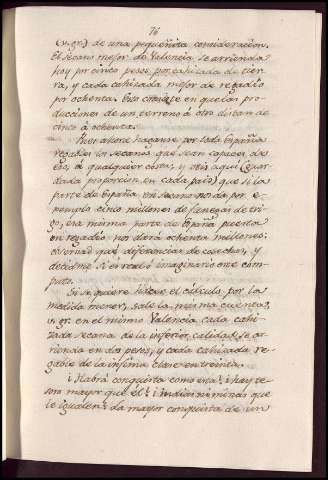 76
(v.gr.) de una pequeñita consideracion.
El secano mejor de Valencia se arrienda
hoy por cinco pesos por cahizada de tier-
ra, y cada cahizada mejor de regadío
por ochenta. Esto consiste en que las pro-
ducciones de un terreno á otro distan de
cinco á ochenta.
Pues ahora haganse por toda España
regadíos los secanos que sean capaces de
eso, á qualquier costa, y será aquel (guar-
dada proporcion en cada país) que si la
parte de España en secano nos da por e-
xemplo cinco millones de fanegas de tri-
go, esa misma parte de España puesta
en regadío nos dará ochenta millones:
observad que diferencias de cosechas, y
decidme si es real ó imaginario este cóm-
puto.
Si se quiere hacer el cálculo por la
medida menor, sale la misma cuenta,
v.gr. en el mismo Valencia cada cahi-
zada secana de la inferior calidad se ar-
rienda en dos pesos, y cada cahizada re-
gadío de la ínfima clase en treinta.
¿Habrá conquista como esta? ¿hay te-
soro mayor que él? ¿Indias ni minas que
le igualen? La mayor conquista de un